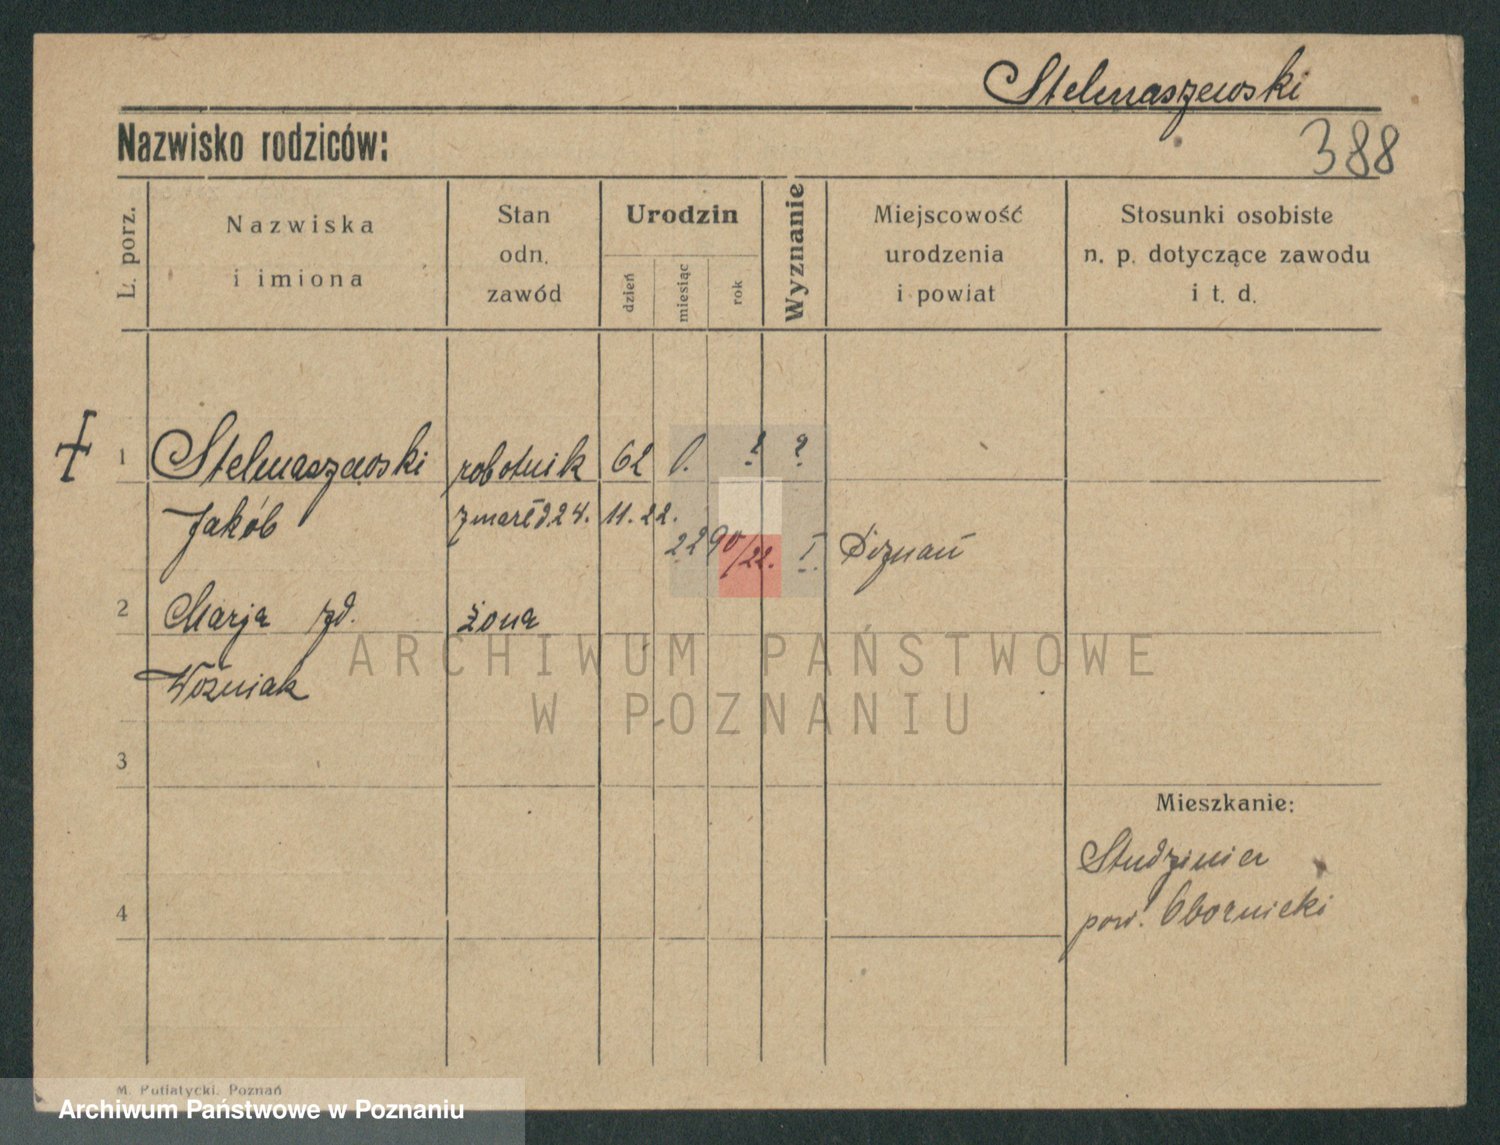 Stelmaszewski
Nazwisko rodziców:
388
L. porz.
Nazwiska
i imiona
Stan
odn.
zawód
Urodzin
dzień
miesiąc
rok
Wyznanie
Miejscowość
urodzenia
i powiat
Stosunki osobiste
n. p. dotyczące zawodu
i t. d.
1 Stelmaszewski robotnik 62 l. ? ?
Jakób zmarł d. 24. 11. 22.
2290/22. I. Poznań
2 Marja zd. żona
Woźniak
ARCHIWUM PAŃSTWOWE
W POZNANIU
3
Mieszkanie:
Studziniec
4
pow. Obornicki
M. Putiatycki, Poznań
Archiwum Państwowe w Poznaniu